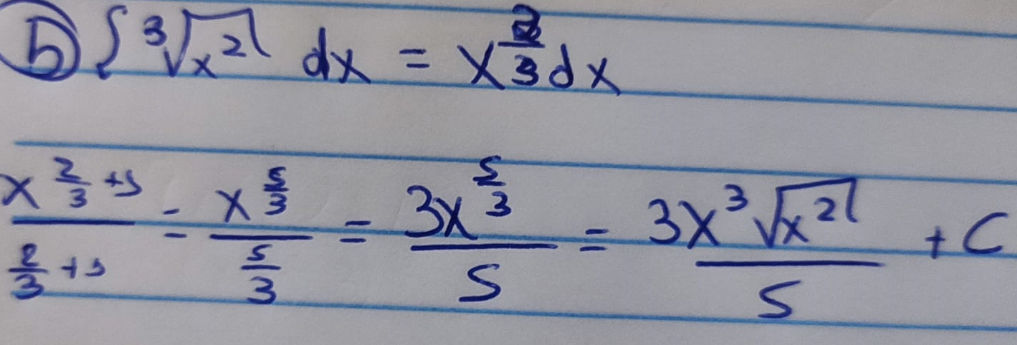 b) ∫ ³√x² dx = x^(2/3) dx
x^(2/3 +1) / (2/3 +1) = x^(5/3) / (5/3) = 3x^(5/3) / 5 = 3x ³√x² / 5 + C